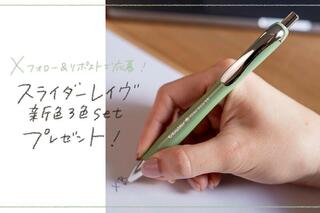 Xフォロー&リポストで応募!
スライダーレイヴ
新色3色set
プレゼント!